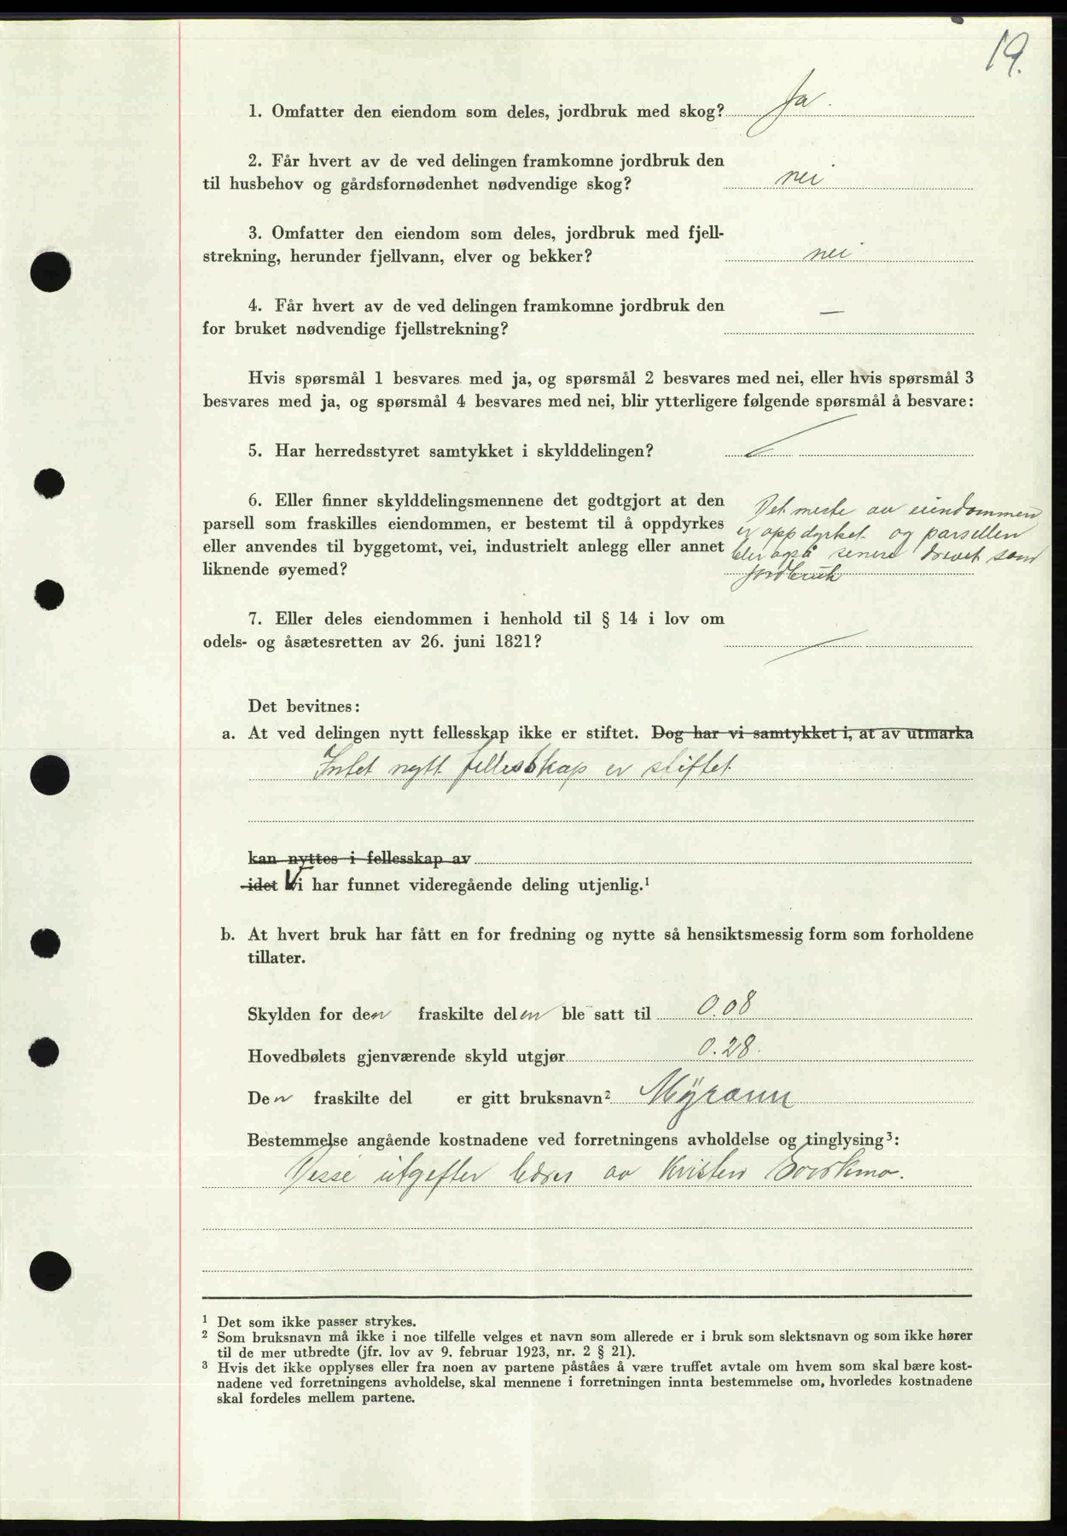 19.
1. Omfatter den eiendom som deles, jordbruk med skog? Ja.
2. Får hvert av de ved delingen framkomne jordbruk den
til husbehov og gårdsfornødenhet nødvendige skog? nei
3. Omfatter den eiendom som deles, jordbruk med fjell-
strekning, herunder fjellvann, elver og bekker? nei
4. Får hvert av de ved delingen framkomne jordbruk den
for bruket nødvendige fjellstrekning? —
Hvis spørsmål 1 besvares med ja, og spørsmål 2 besvares med nei, eller hvis spørsmål 3
besvares med ja, og spørsmål 4 besvares med nei, blir ytterligere følgende spørsmål å besvare:
5. Har herredsstyret samtykket i skylddelingen?
6. Eller finner skylddelingsmennene det godtgjort at den
parsell som fraskilles eiendommen, er bestemt til å oppdyrkes
eller anvendes til byggetomt, vei, industrielt anlegg eller annet
liknende øyemed?
Det meste av eiendommen
er oppdyrket og parsellen
blir også senere drevet som
jordbruk
7. Eller deles eiendommen i henhold til § 14 i lov om
odels- og åsætesretten av 26. juni 1821?
Det bevitnes:
a. At ved delingen nytt fellesskap ikke er stiftet. Dog har vi samtykket i, at av utmarka
Intet nytt fellesskap er stiftet
kan nyttes i fellesskap av
idet Vi har funnet videregående deling utjenlig.¹
b. At hvert bruk har fått en for fredning og nytte så hensiktsmessig form som forholdene
tillater.
Skylden for den fraskilte delen ble satt til 0.08
Hovedbølets gjenværende skyld utgjør 0.28.
Den fraskilte del er gitt bruksnavn² Myraun
Bestemmelse angående kostnadene ved forretningens avholdelse og tinglysing³:
Disse utgifter bæres av Kristen
¹ Det som ikke passer strykes.
² Som bruksnavn må ikke i noe tilfelle velges et navn som allerede er i bruk som slektsnavn og som ikke hører
til de mer utbredte (jfr. lov av 9. februar 1923, nr. 2 § 21).
³ Hvis det ikke opplyses eller fra noen av partene påståes å være truffet avtale om hvem som skal bære kost-
nadene ved forretningens avholdelse, skal mennene i forretningen innta bestemmelse om, hvorledes kostnadene
skal fordeles mellem partene.